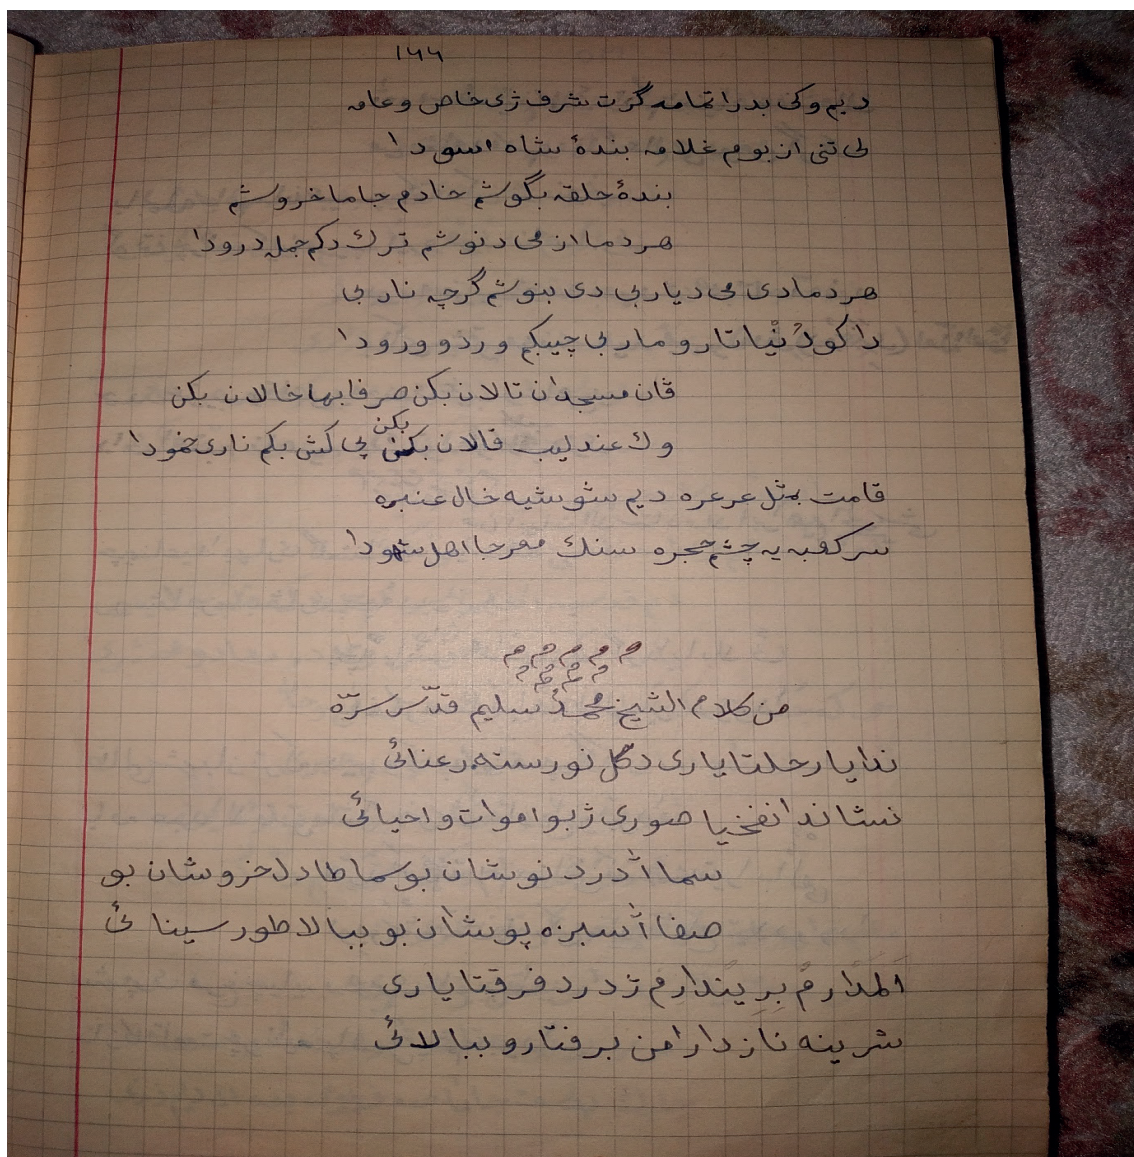 ١٤٤
ديم وكى بدرا تمامه گرت شرف ژى خاص وعامه
لى تنى از بوم غلامه بندهٔ شاه اسودا
بندهٔ حلقه بگوشم خادم جاما خروشم
هر دما از مى دنوشم ترك دكم جمله درودا
هر دما دى مى ديار بى دى بنوشم گرچه نار بى
داكو دُنْيا تار و مار بى چيبكم وردو ورودا
ڤان مسجدان تالان بكن صرفا بها خالان بكن
وك عندليب ڤالان بكن بكن پى كش بكم نارى خمودا
قامت بمثل عرعره ديم شوشيه خال عنبره
سر كعبه يه چشم حجره سنك معرجا اهل شهودا
من كلام الشيخ محمد سليم قدّس سرّه
ندا يار حلتا يارى دگل نورسته رعنائى
نشاندا نفخيا صورى ژبو اموات و احيائى
سما آدرد نوشان بو سماطا دل خروشان بو
صفا آسبزه پوشان بو ببالا طور سينائى
اَلمدارم بِرِيندارم ژ درد فرقتا يارى
شرينه نازدارا من برفتار و ببالائى